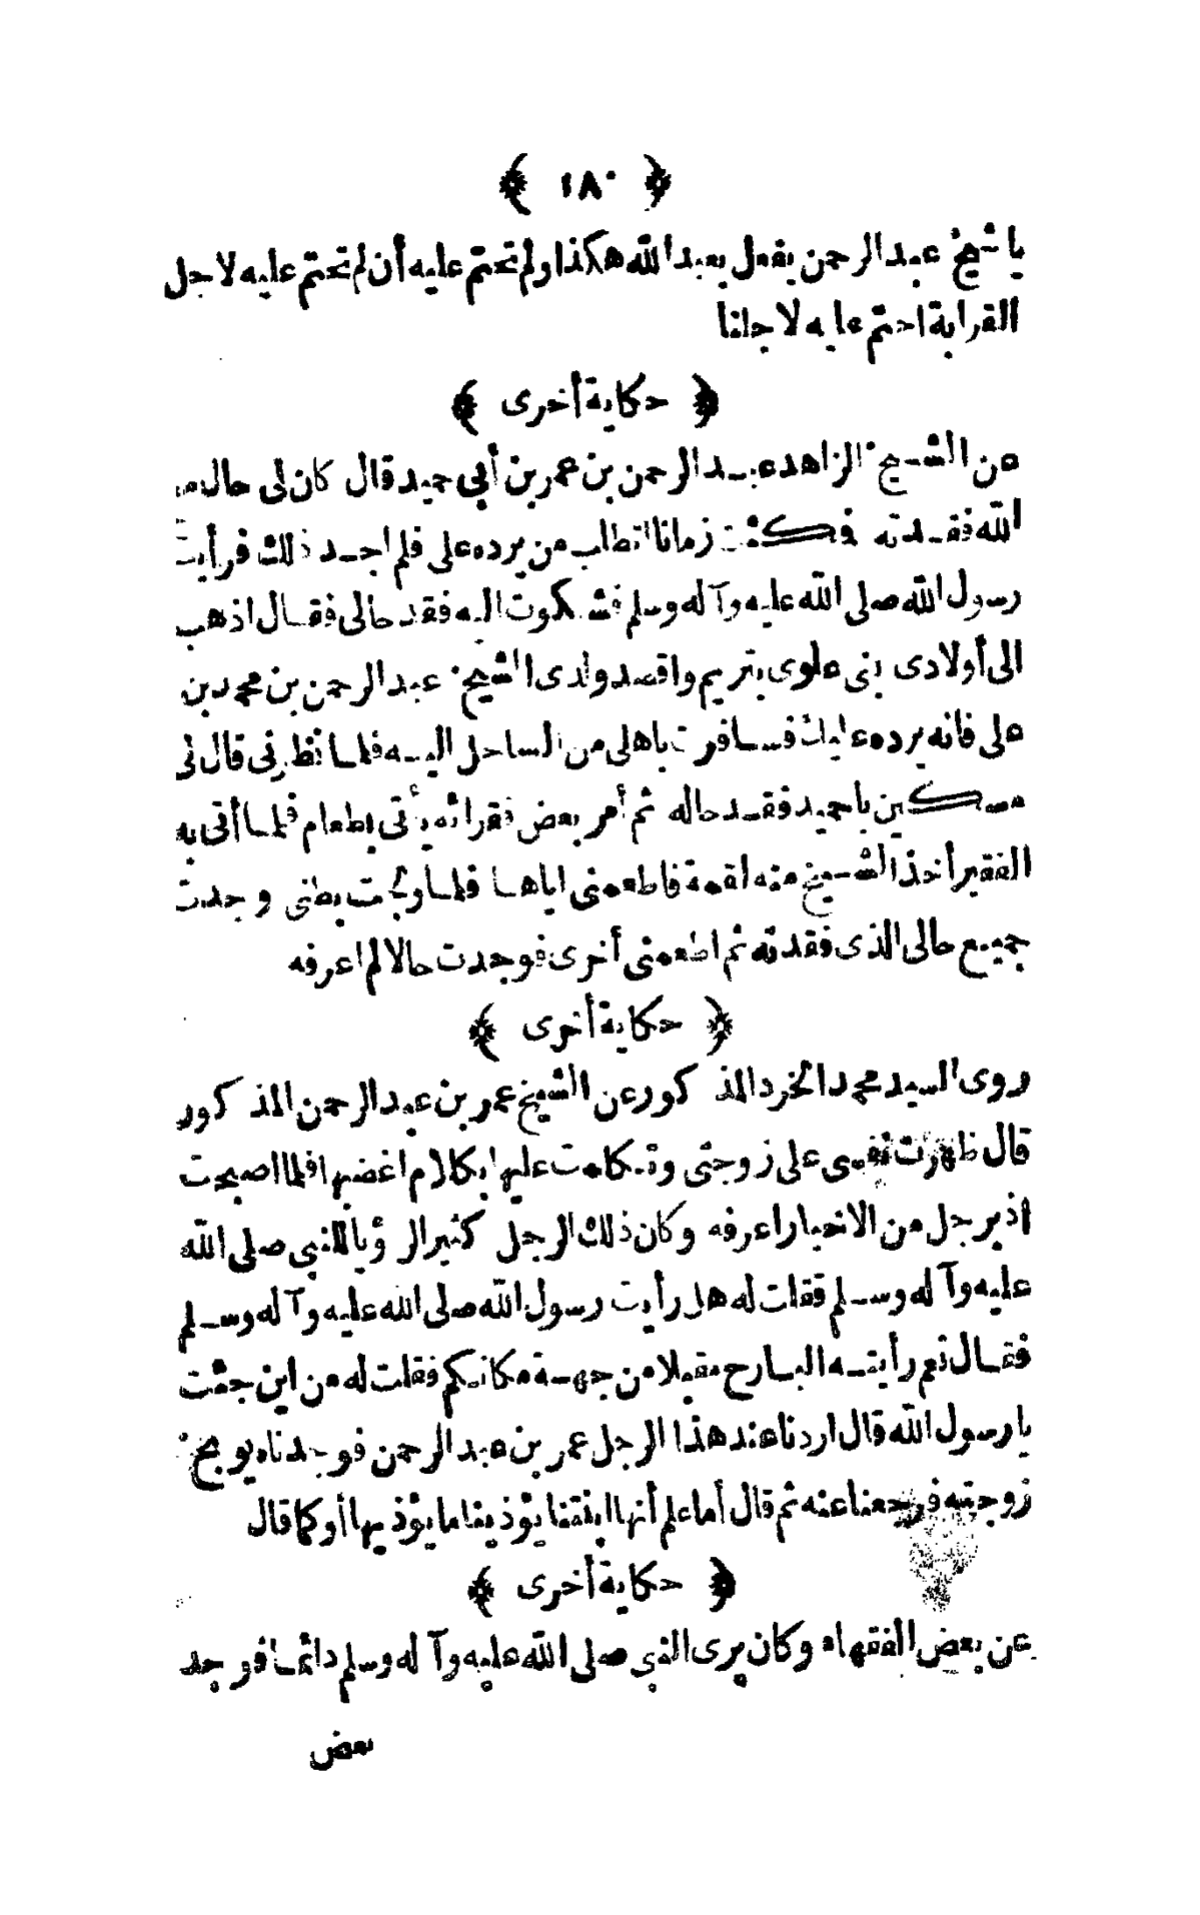 ﴿ ١٨٠ ﴾
ياشيخ عبدالرحمن يفعل بعبدالله هكذا ولم تحتم عليه أن لم تحتم عليه لاجل
القرابة احتم عليه لاجلنا
﴿ حكاية أخرى ﴾
عن الشيخ الزاهد عبدالرحمن بن عمر بن أبي حميد قال كان لى حال مع
الله فقدته فكثت زمانا اتطلب من يرده على فلم اجد ذلك فرأيت
رسول الله صلى الله عليه وآله وسلم فشكوت اليه فقد حالى فقال اذهب
الى أولادى بنى علوى بتريم واقصد ولدى الشيخ عبدالرحمن بن محمد بن
على فانه يرده عليك فسافرت باهلى من الساحل اليه فلما نظرنى قال لى
مسكين باحميد فقد حاله ثم أمر بعض فقرائه يأتى بطعام فلما أتى به
الفقير أخذ الشيخ منه لقمة فاطعمنى اياها فلما ولجت بطنى وجدت
جميع حالى الذى فقدته ثم اطعمنى أخرى فوجدت حالا لم اعرفه
﴿ حكاية أخرى ﴾
روى السيد محمد الخرد المذكور عن الشيخ عمر بن عبدالرحمن المذكور
قال ظهرت نفسى على زوجتى وتكلمت عليها بكلام اغضبها فلما اصبحت
اذ برجل من الاخيار اعرفه وكان ذلك الرجل كثير الرؤيا للنبى صلى الله
عليه وآله وسلم فقلت له هل رأيت رسول الله صلى الله عليه وآله وسلم
فقال نعم رأيته البارح مقبلا من جهة مكانكم فقلت له من اين جئت
يارسول الله قال اردنا عند هذا الرجل عمر بن عبدالرحمن فوجدناه يوبخ
زوجته فرجعنا عنه ثم قال أما علم أنها ابنتنا يؤذينا ما يؤذيها أو كما قال
﴿ حكاية أخرى ﴾
عن بعض الفقهاء وكان يرى النبى صلى الله عليه وآله وسلم دائما فوجد
بعض